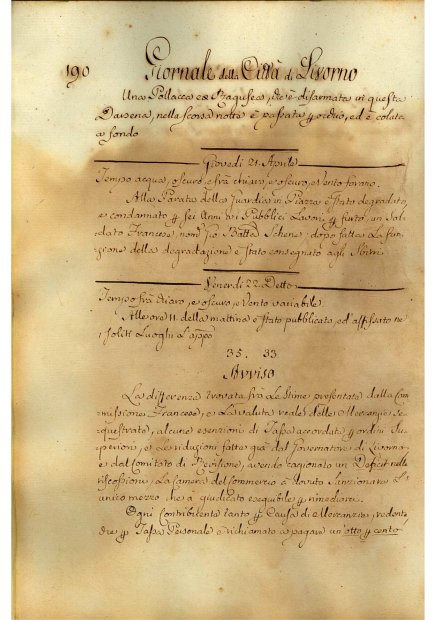 190
Giornale della Città di Livorno
Una Pollacca Ragusea, che è disarmata in questa
Darsena, nella scorsa notte è passata ed è colata
a fondo
Giovedi 21. Aprile
Tempo acqua, oscuro e frà chiaro, e oscuro, e Vento
Alla Parata della Guardia in Piazza è stato degradato,
e condannato per sei Anni ai Pubblici Lavori per furto, un Sol:
dato Francese dopo fatta La fun:
zione della degradazione è stato consegnato agli Sbirri
Venerdi 22. Detto
Tempo frà chiaro, e oscuro e Vento variabile.
Alle ore 11. della mattina è stato pubblicato, ed affissato ne
i soliti Luoghi L'app.o
35. 33
Avviso
La differenza trovata frà Le stime presentate dalla Com:
missione Francese, e La valuta reale delle Mercanzie se:
questrate, alcune esenzioni di Tassa accordate per ordini Su:
periori, e Le riduzioni fatte già dal Governatore di Livorno,
e dal Comitato di avendo cagionato un Deficit nella
riscossione, La Camera del Commercio è Sanzionare L'
unico mezzo che à giudicato eseguibile per rimediarvi.
Ogni Contribuente tanto per Causa di Mercanzie, vedente,
che per Tassa Personale è richiamato a pagare un'otto per cento